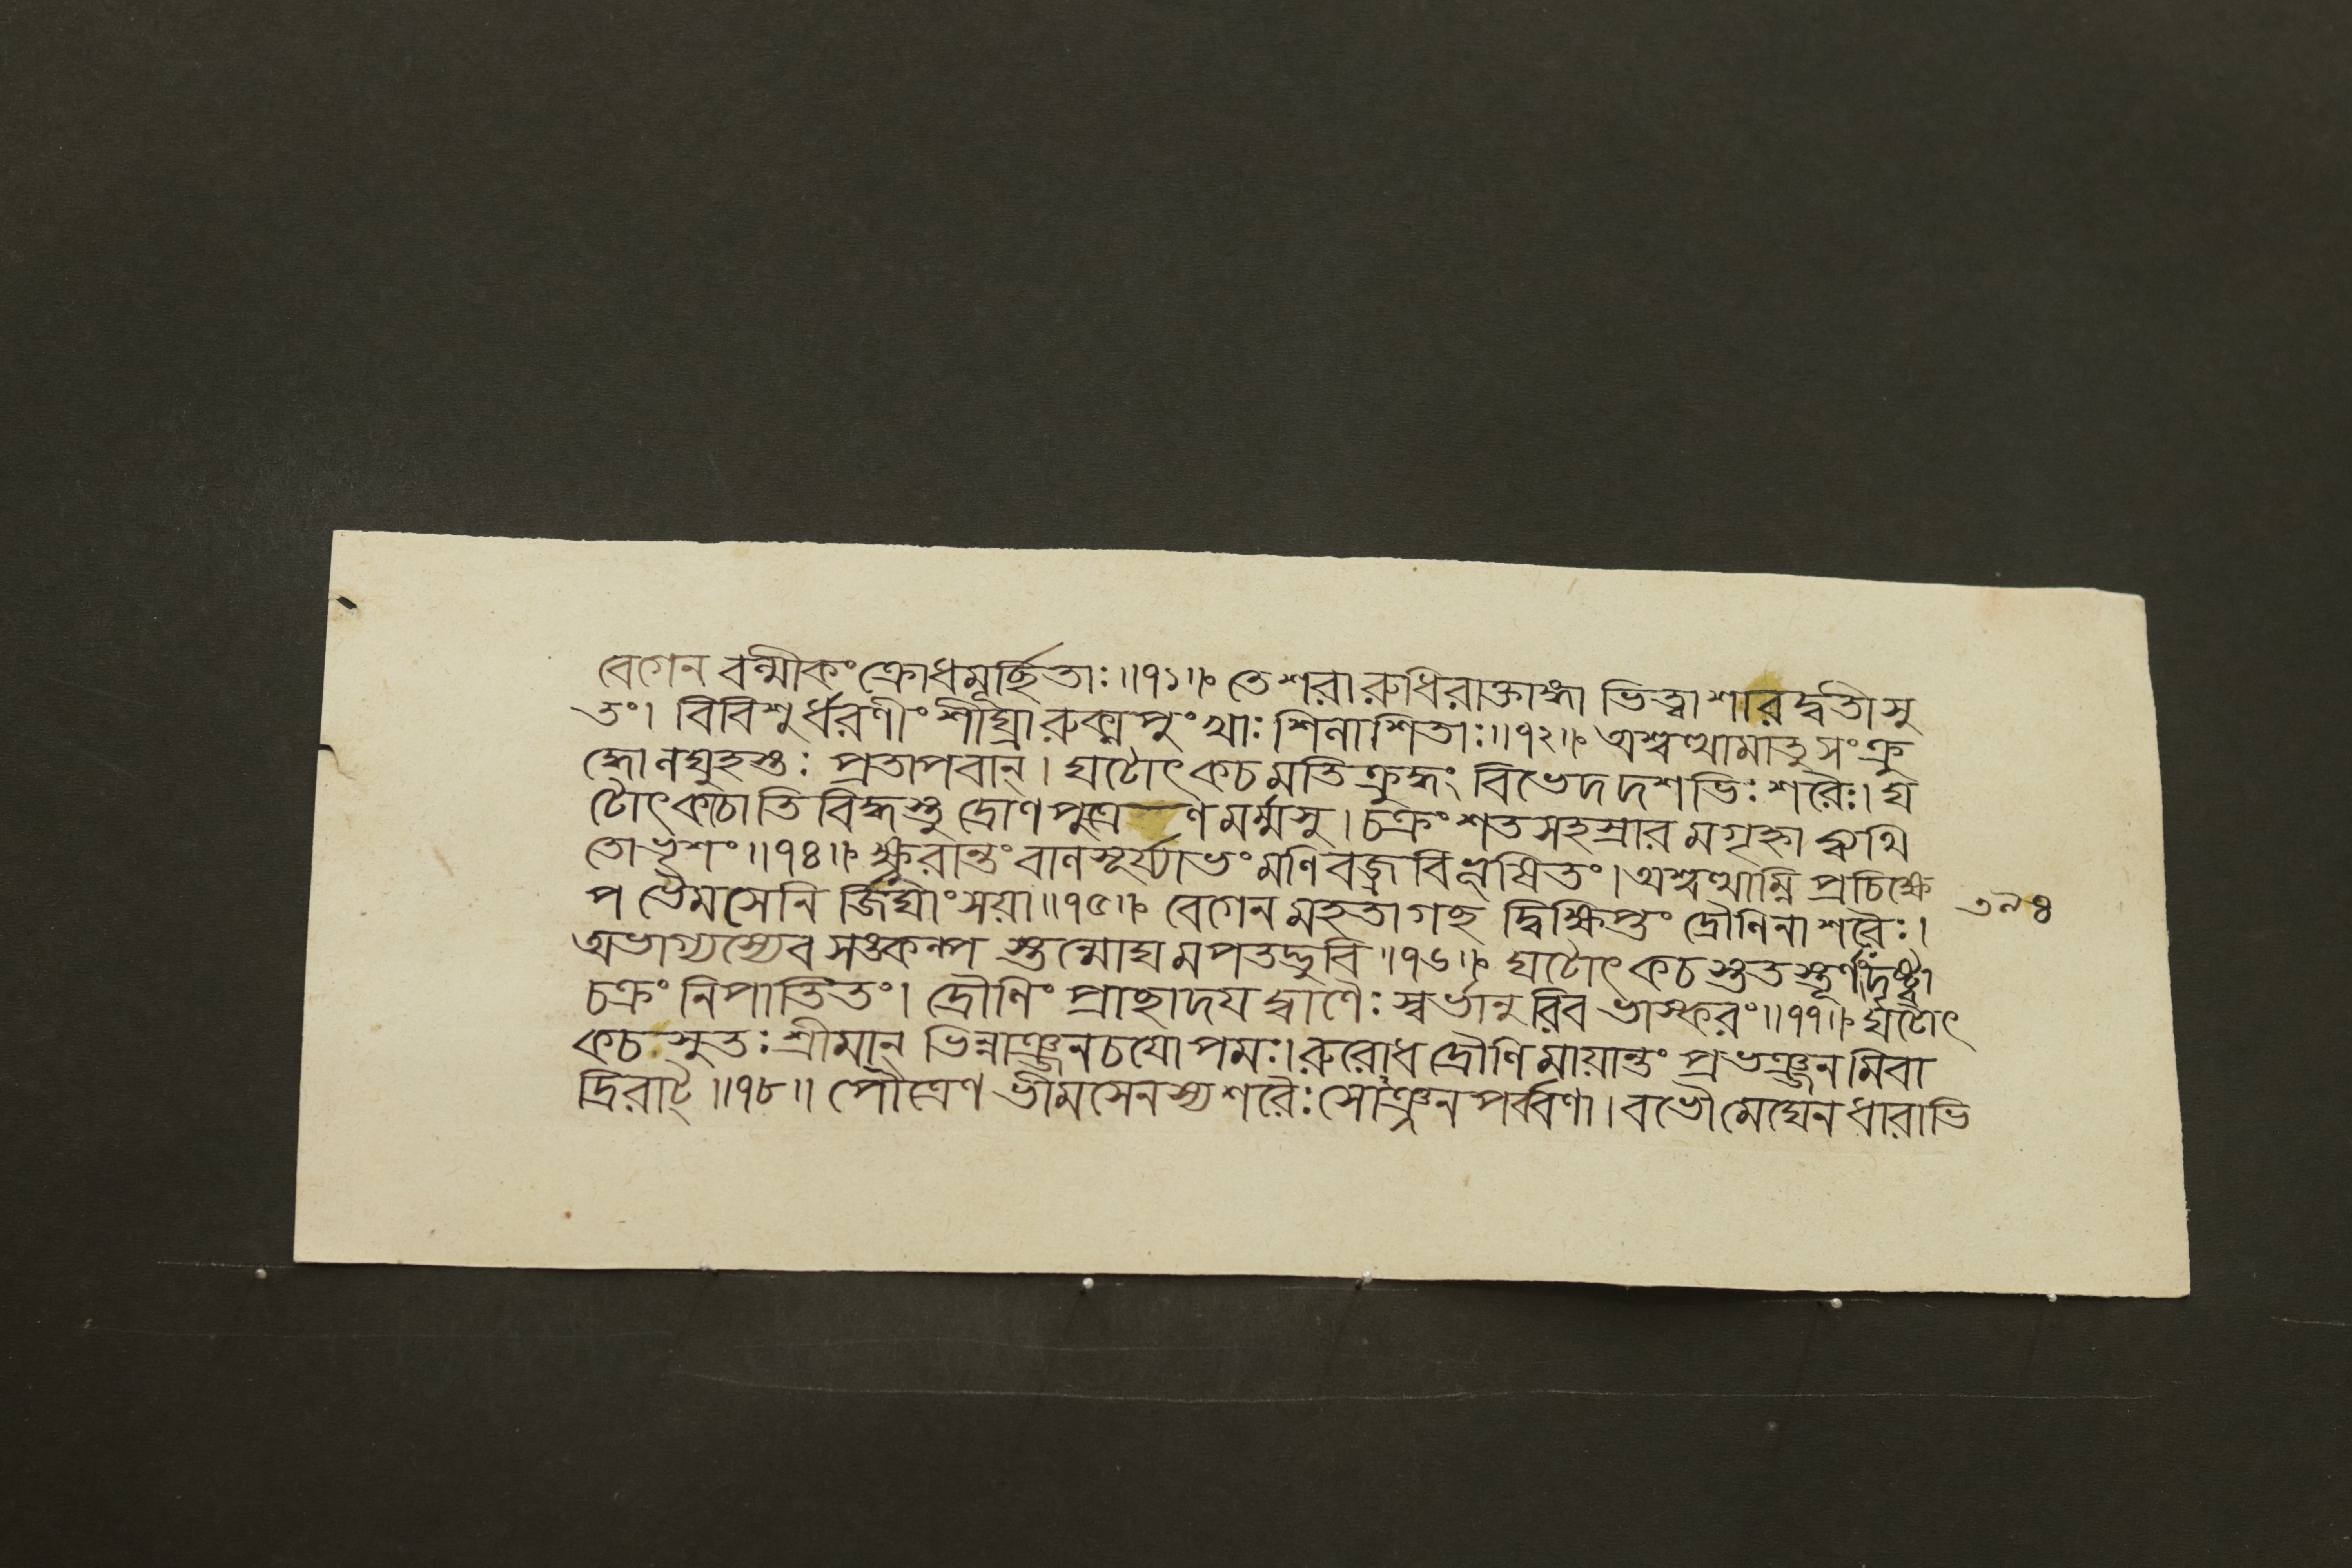 বেগেন বল্মীকং ক্রোধমূর্চ্ছিতাঃ॥৭১॥ তে শরা রুধিরাক্তাঙ্গা ভিত্ত্বা শারদ্বতীসু
তং। বিবিশুর্ধরণীং শীঘ্রা রুক্মপুংখাঃ শিলাশিতাঃ॥৭২॥ অশ্বত্থামাতু সংক্রু
দ্ধোলঘুহস্তঃ প্রতাপবান্। ঘটোৎকচমতিক্রুদ্ধং বিভেদ দশভিঃ শরৈঃ। ঘ
টোৎকচোতিবিদ্ধস্তু দ্রোণপুত্রেণ মর্ম্মসু। চক্রং শতসহস্রারমগৃহ্ণাদ্ব্যথি
তোভৃশং॥৭৪॥ ক্ষুরান্তং বালসূর্য্যাভং মণিবজ্রবিভূষিতং। অশ্বত্থাম্নি প্রচিক্ষে
প ভৈমসেনির্জিঘাংসয়া॥৭৫॥ বেগেন মহতাগছদ্বিক্ষিপ্তং দ্রৌণিনা শরৈঃ। ৩৯৪
অভাগ্যস্যেব সঙকল্পস্তন্মোঘমপতদ্ভুবি॥৭৬॥ ঘটোৎকচস্তুতস্তূর্ণং দৃষ্ট্বা
চক্রং নিপাতিতং। দ্রৌণিং প্রাছাদযদ্বাণৈঃ স্বর্ভানুরিব ভাস্করং॥৭৭॥ ঘটোৎ
কচসুতঃ শ্রীমান্ ভিন্নাঞ্জনচযোপমঃ। রুরোধ দ্রৌণিমায়ান্তং প্রভঞ্জনমিবা
দ্রিরাট্॥৭৮॥ পৌত্রেণ ভীমসেনস্য শরৈঃ সোঞ্জনপর্ব্বণা। বভৌ মেঘেন ধারাভি